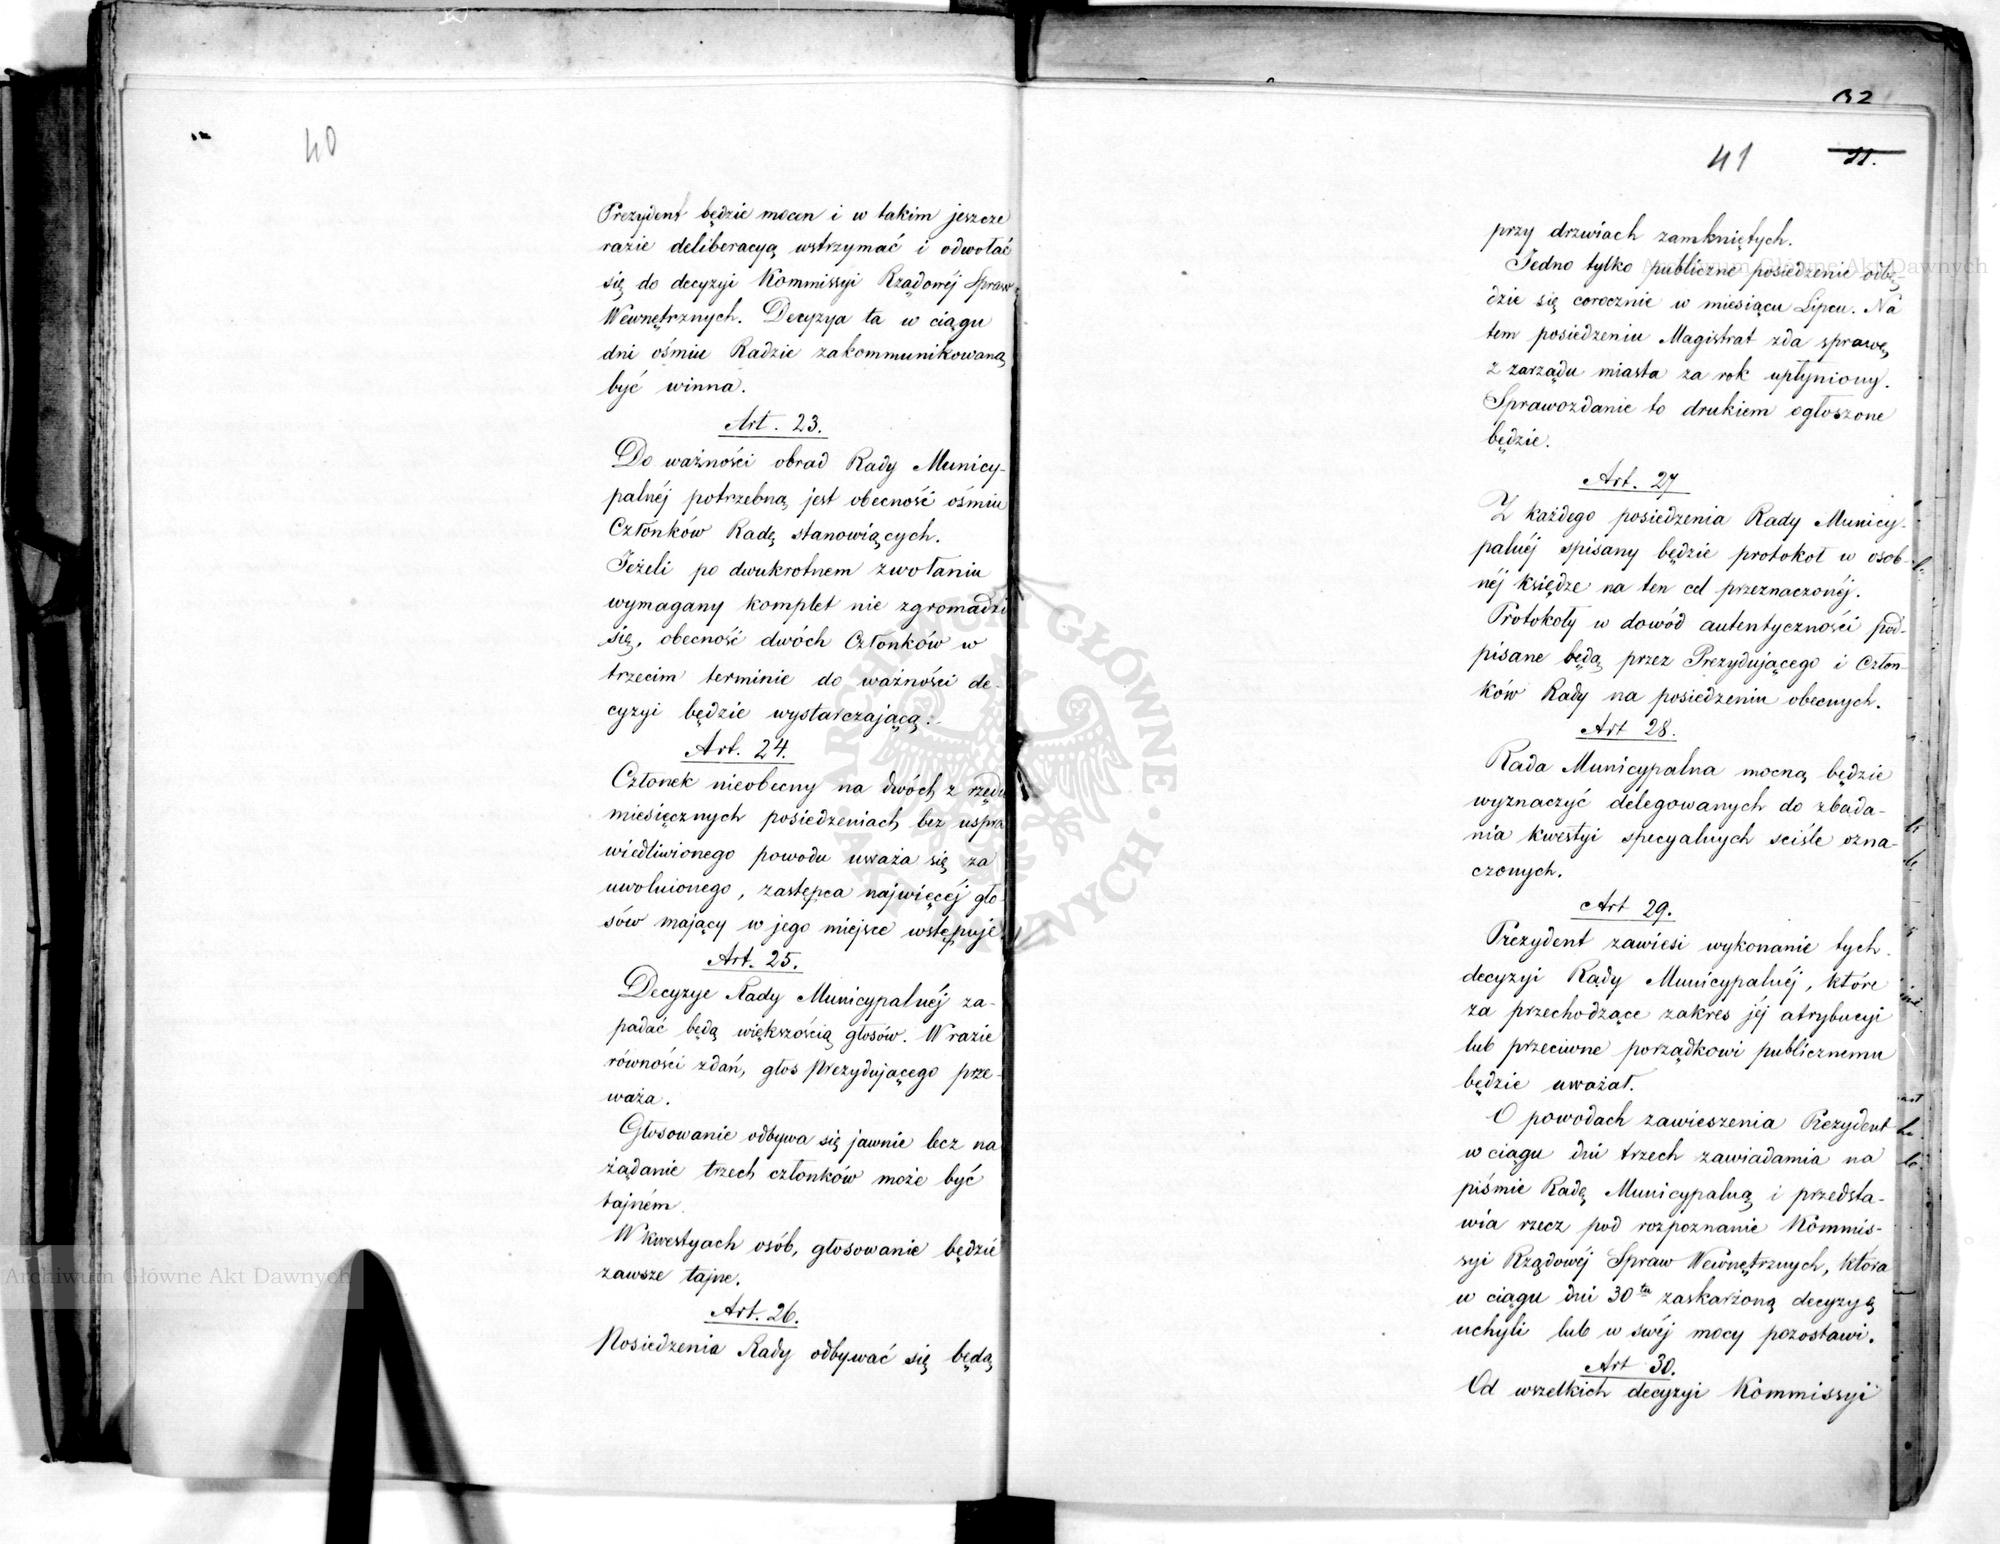 40
Prezydent będzie mocen i w takim jeszcze
razie deliberacyą wstrzymać i odwołać
się do decyzyi Kommissyi Rządowéj Spraw
Wewnętrznych. Decyzya ta w ciągu
dni ośmiu Radzie zakommunikowaną
być winna.
Art. 23.
Do ważności obrad Rady Municy-
palnéj potrzebną jest obecność ośmiu
Członków Radę stanowiących.
Jeżeli po dwukrotnem zwołaniu
wymagany komplet nie zgromadzi
się, obecność dwóch Członków w
trzecim terminie do ważności de-
cyzyi będzie wystarczającą.
Art. 24.
Członek nieobecny na dwóch z rzędu
miesięcznych posiedzeniach bez uspra
wiedliwionego powodu uważa się za
uwolnionego, zastępca najwięcéj gło-
sów mający w jego miejsce wstępuje.
Art. 25.
Decyzye Rady Municypalnéj za-
padać będą większością głosów. W razie
równości zdań, głos Prezydującego prze-
waża.
Głosowanie odbywa się jawnie lecz na
żądanie trzech członków może być
tajném.
W kwestyach osób, głosowanie będzie
zawsze tajne.
Art. 26.
Posiedzenia Rady odbywać się będą
32
41 11.
przy drzwiach zamkniętych.
Jedno tylko publiczne posiedzenie odbę-
dzie się corocznie w miesiącu Lipcu. Na
tem posiedzeniu Magistrat zda sprawę,
z zarządu miasta za rok upłyniony.
Sprawozdanie to drukiem ogłoszone
będzie.
Art. 27
Z każdego posiedzenia Rady Municy-
palnéj spisany będzie protokoł w osob-
néj księdze na ten cel przeznaczonéj.
Protokoły w dowód autentyczności pod-
pisane będą przez Prezydującego i Człon-
ków Rady na posiedzeniu obecnych.
Art 28.
Rada Municypalna mocną będzie
wyznaczyć delegowanych do zbada-
nia kwestyi specyalnych sciśle ozna-
czonych.
Art 29.
Prezydent zawiesi wykonanie tych
decyzyi Rady Municypalnéj, które
za przechodzące zakres jéj atrybucyi
lub przeciwne porządkowi publicznemu
będzie uważał.
O powodach zawieszenia Prezydent
w ciągu dni trzech zawiadamia na
piśmie Radę Municypalną i przedsta-
wia rzecz pod rozpoznanie Kommis-
syi Rządowéj Spraw Wewnętrznych, która
w ciągu dni 30tu zaskarżoną decyzyą
uchyli lub w swéj mocy pozostawi.
Art 30.
Od wszelkich decyzyi Kommissyi
Archiwum Główne Akt Dawnych
Archiwum Główne Akt Dawnych
ARCHIWUM GŁÓWNE AKT DAWNYCH